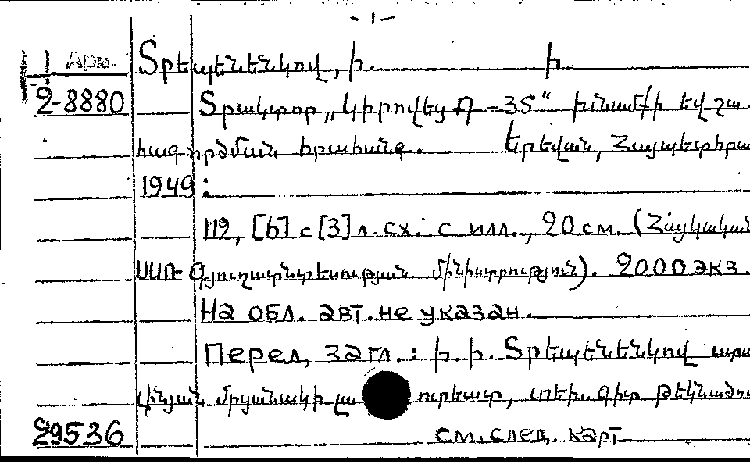 - 1 -
Арм. Տրեպենենկով, ի. ի.
2-8880 Տրակտոր „Կիրովեց Դ-35“ խնամքի եվ շա
հագործման հրահանգ. Երեվան, Հայպետհրա
1949:
112, [6] с [3] л. сх. с илл., 20 см. (Հայկական
ՍՍՌ Գյուղատնտեսության մինիստրություն). 2000 экз.
На обл. авт. не указан.
Перед загл.: ի. ի. Տրեպենենկով
տեխ. գիտ. թեկնածու
29536 см. след. карт